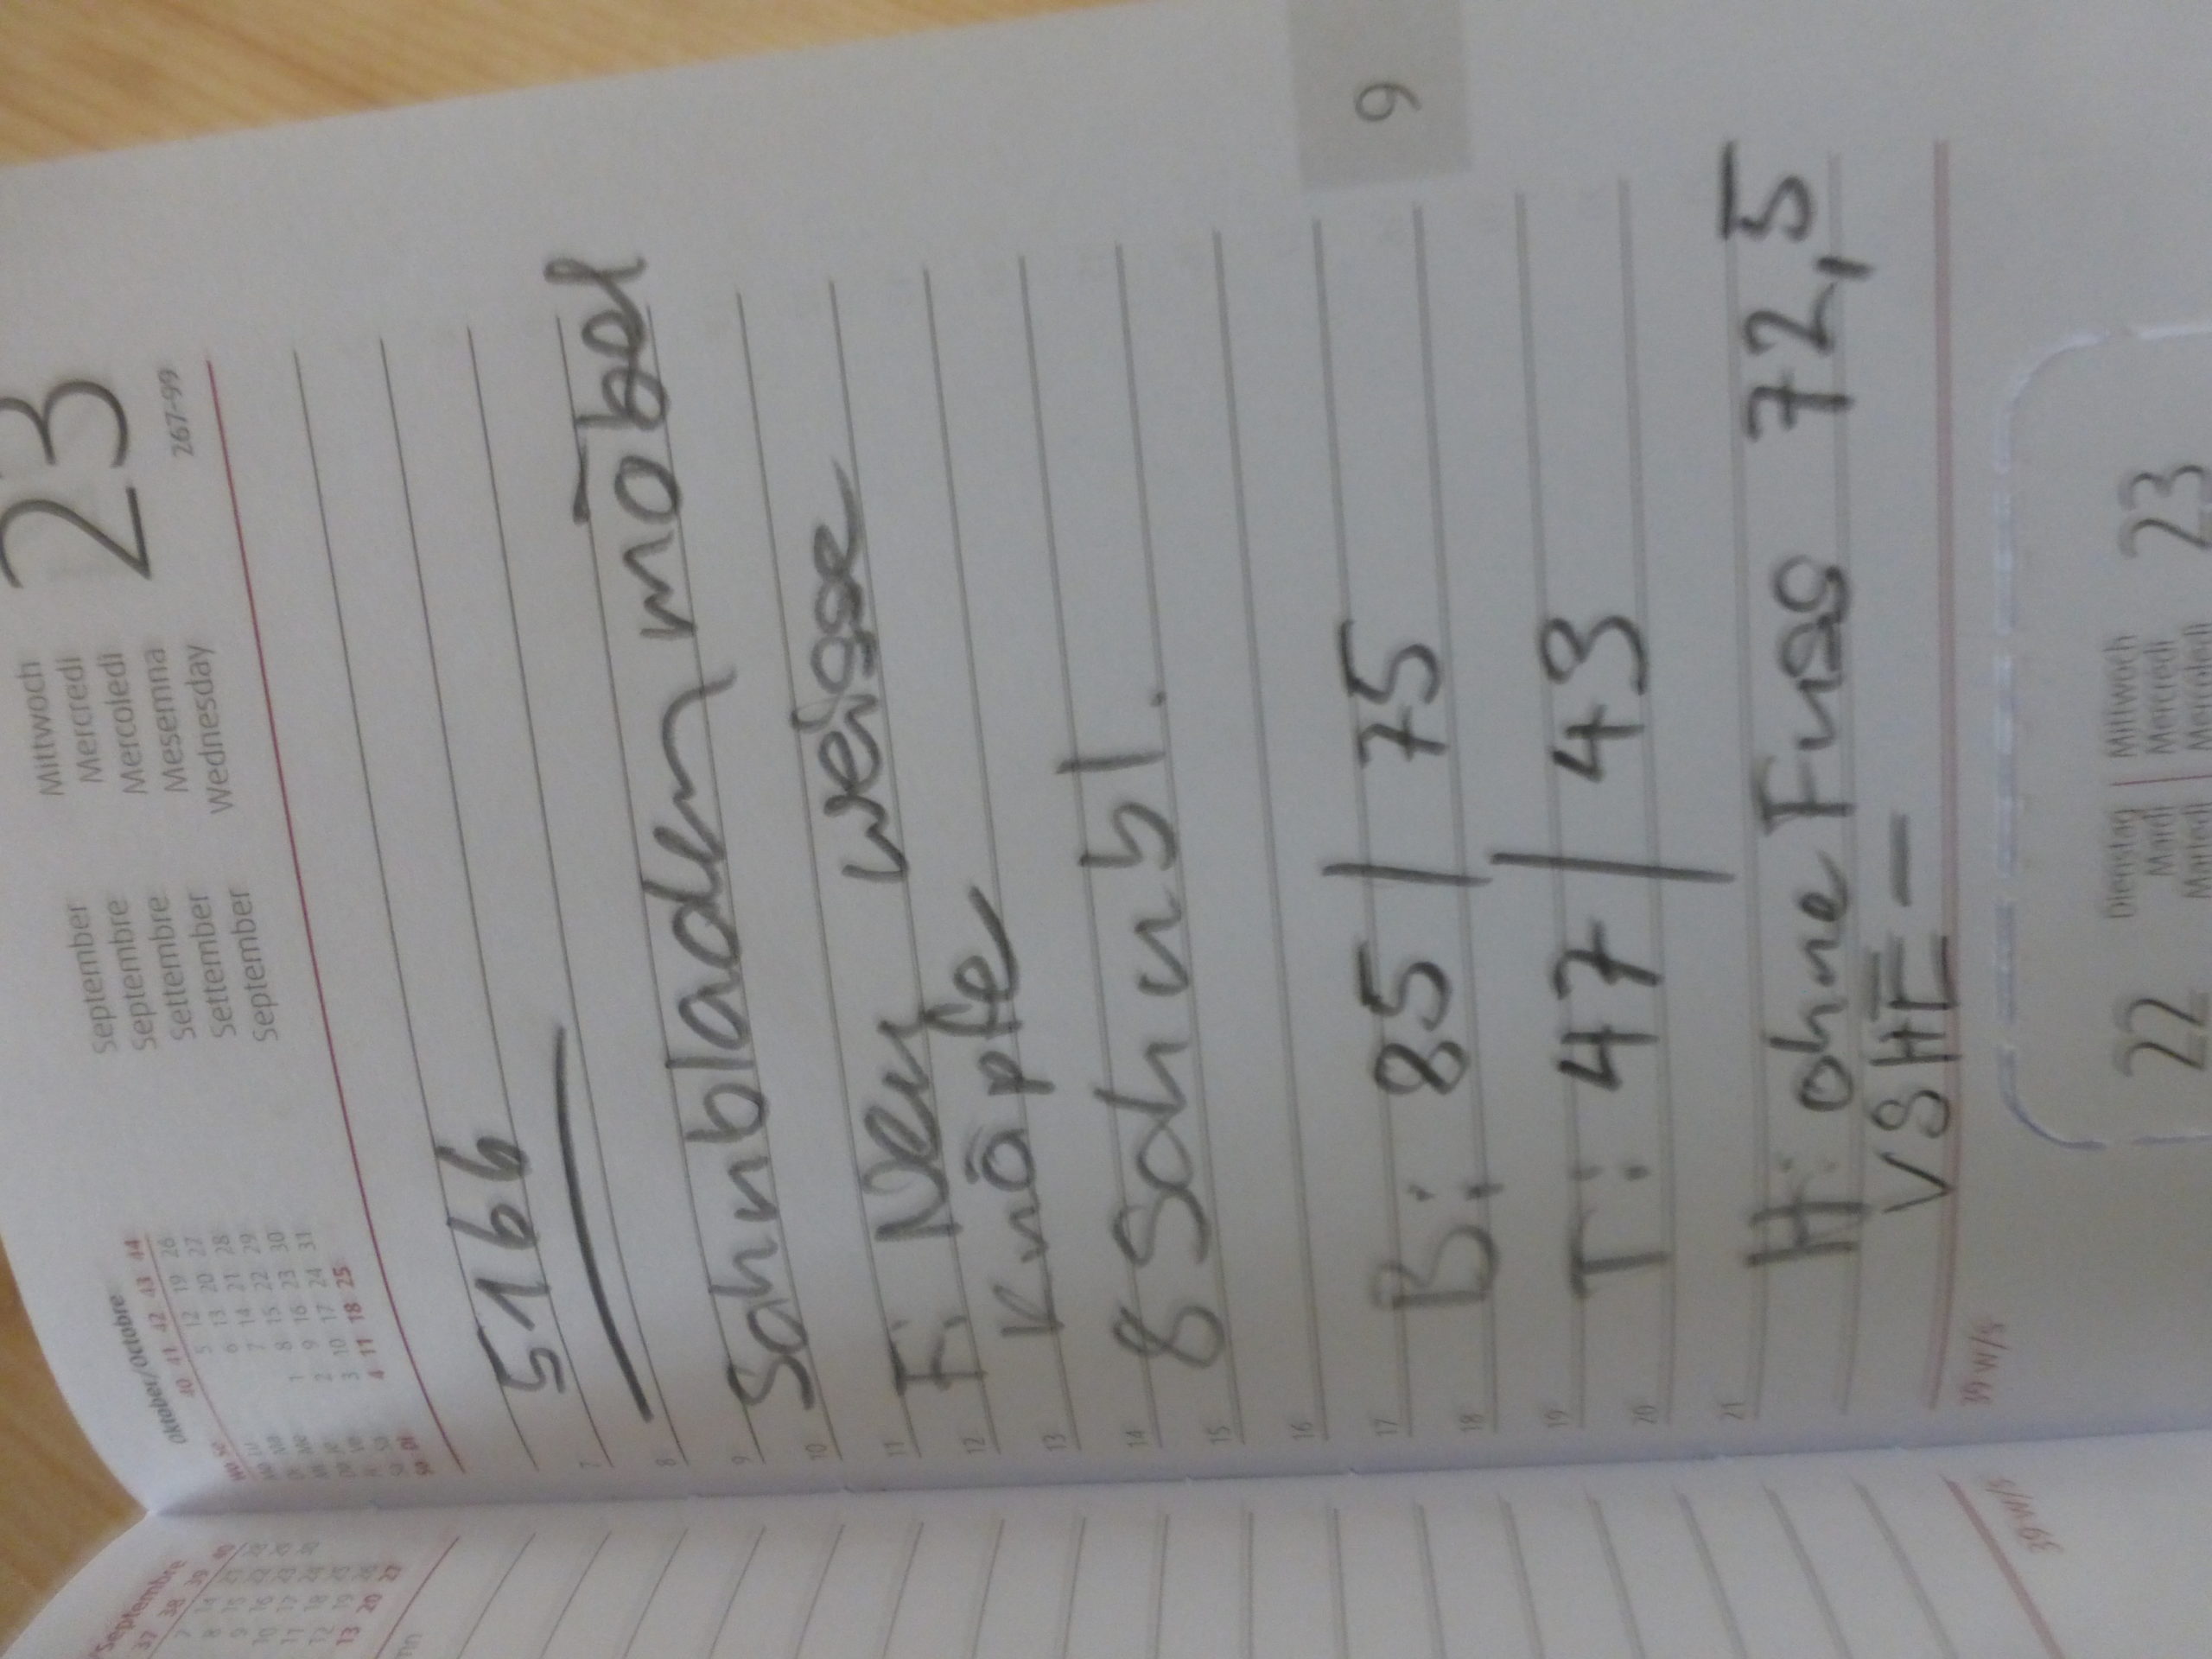 September Mittwoch 23
Septembre Mercredi
Settembre Mercoledi
Settember Mesemna
September Wednesday 267-99
Oktober/Octobre
40 41 42 43 44
5 12 19 26
6 13 20 27
7 14 21 28
1 8 15 22 29
2 9 16 23 30
3 10 17 24 31
4 11 18 25
5166
7
8
Schubladenmöbel
9
10
F: Neu weisse
11
Knöpfe
12
13
8 Schubl.
14
15
16
B: 85 / 75
17
18
T: 47 / 43
19
20
H: ohne Fuss 72,5
21
VSHF —
39 W/S
9
22 Dienstag Mittwoch 23
Mardi Mercredi
Martedi Mercoledi
Septembre
37 38 39 40
7
8 14
13 20 27
39 W/S